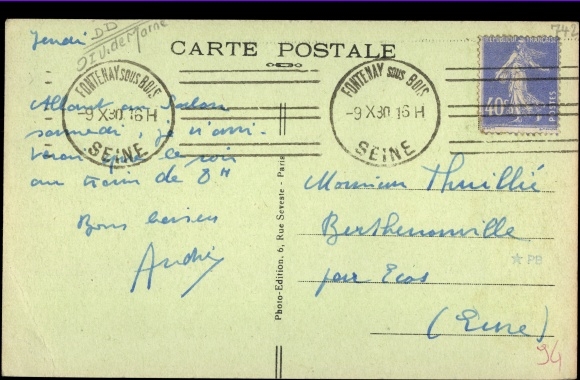 Jeudi
DD
DIV. de Marne
742
CARTE POSTALE
FONTENAY SOUS BOIS
-9 X 30 16 H
SEINE
FONTENAY SOUS BOIS
-9 X 30 16 H
SEINE
40c
POSTES
Allant au Salon
samedi, je n'arri-
verai que le soir
au train de 8H
Bons baisers
André
Photo-Edition, 6, Rue Seveste - Paris
Monsieur Thuillié
Berthenonville
par Ecos
(Eure)
PB
94